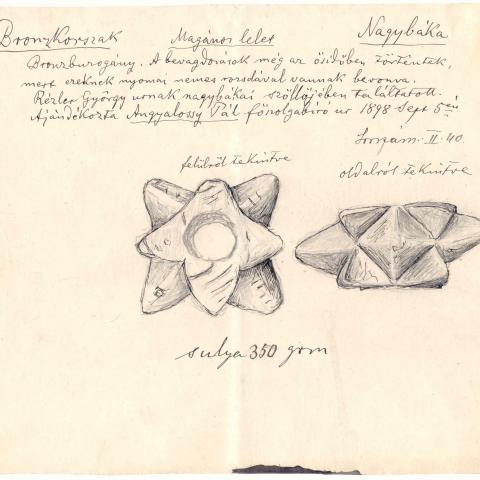 BronzKorszak Magános lelet Nagybáka
Bronzbuzogány. A bevagdosások még az ősidőben történtek,
mert ezeknek nyomai nemes rozsdával vannak bevonva.
Rézler György urnak nagybákai szöllőjében találtatott.
Ajándékozta Angyalossy Pál főszolgabíró ur 1898 Sept 5én
Sorszám. II. 40.
felülről tekintve
oldalról tekintve
sulya 350 grm